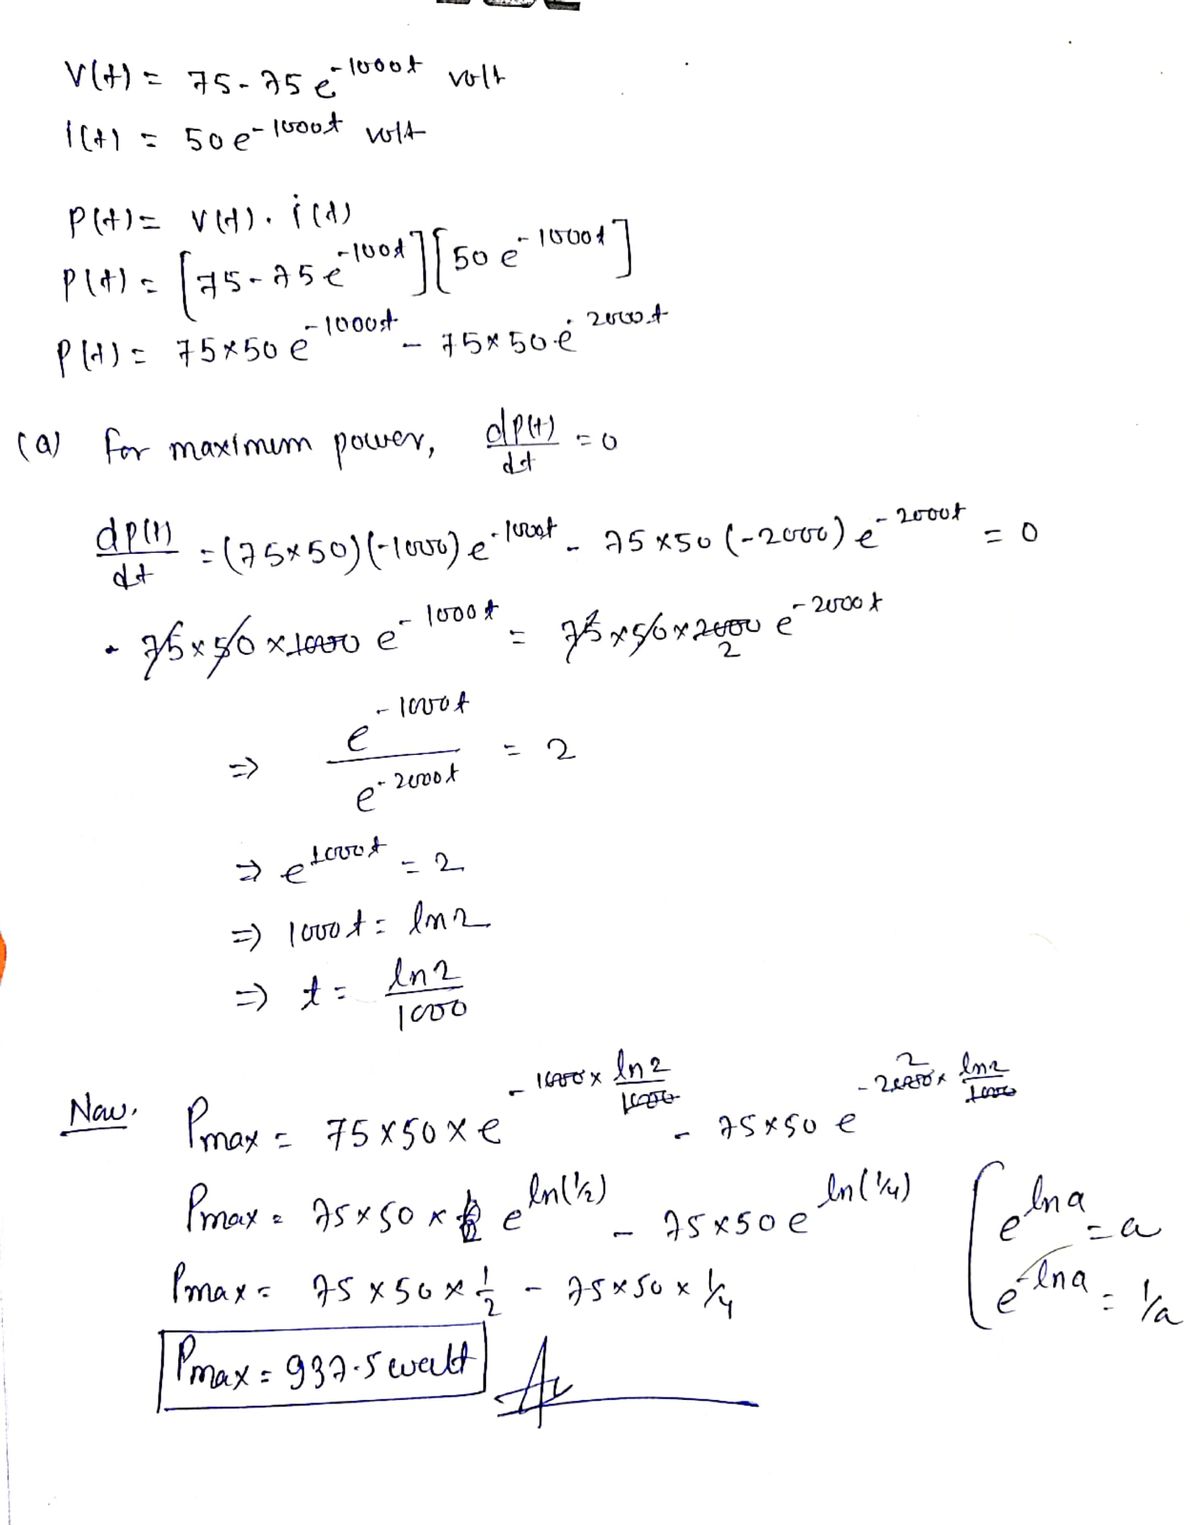 V(t) = 75-75 e^-1000t volt
i(t) = 50 e^-1000t volt
P(t) = V(t) . i(t)
P(t) = [75-75 e^-100t][50 e^-1000t]
P(t) = 75×50 e^-1000t - 75×50 e^-2000t
(a) for maximum power, dP(t)/dt = 0
dp(t)/dt = (75×50)(-1000) e^-1000t - 75×50 (-2000) e^-2000t = 0
75×50×1000 e^-1000t = 75×50×2000 e^-2000t
2
⇒ e^-1000t / e^-2000t = 2
⇒ e^1000t = 2
⇒ 1000t = ln2
⇒ t = ln2/1000
Now, Pmax = 75×50×e^-1000×ln2/1000 - 75×50 e^-2000×ln2/1000
2
Pmax = 75×50× e^ln(1/2) - 75×50 e^ln(1/4) [e^lna = a
Pmax = 75×50×1/2 - 75×50×1/4 e^-lna = 1/a
Pmax = 937.5 watt